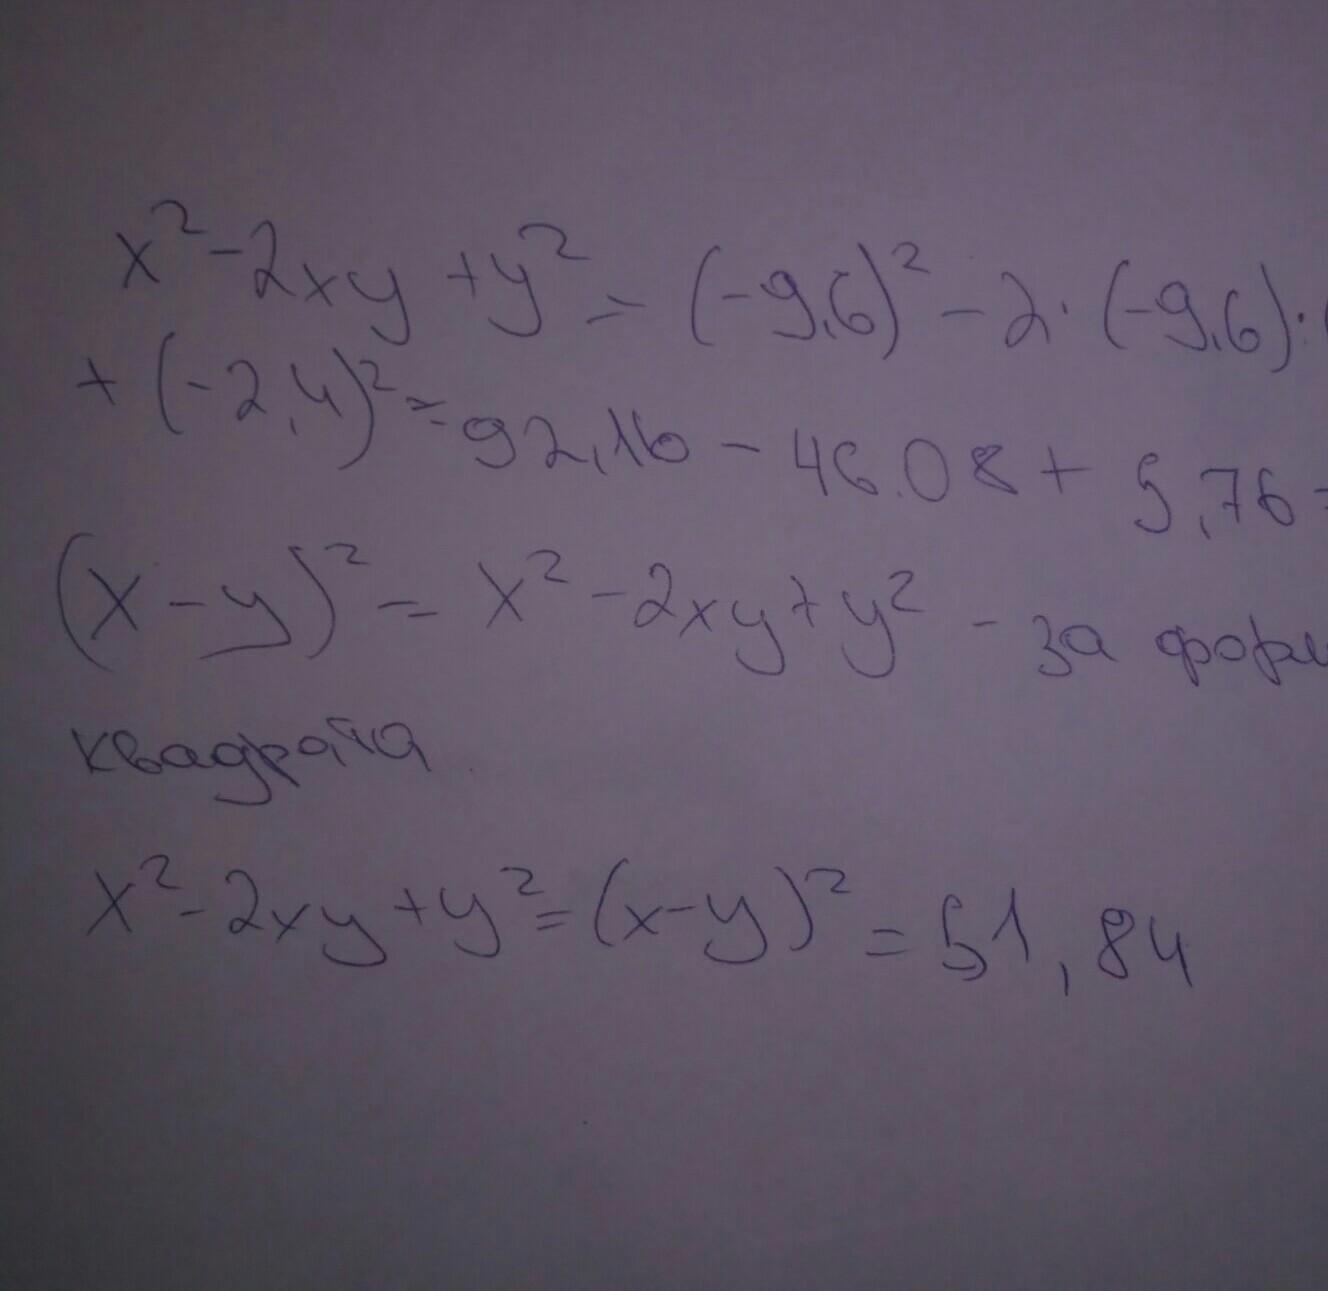 x² - 2xy + y² = (-9,6)² - 2 · (-9,6) · (
+ (-2,4)² = 92,16 - 46.08 + 5,76 =
(x - y)² = x² - 2xy + y² - за форм
квадрата
x² - 2xy + y² = (x - y)² = 51,84